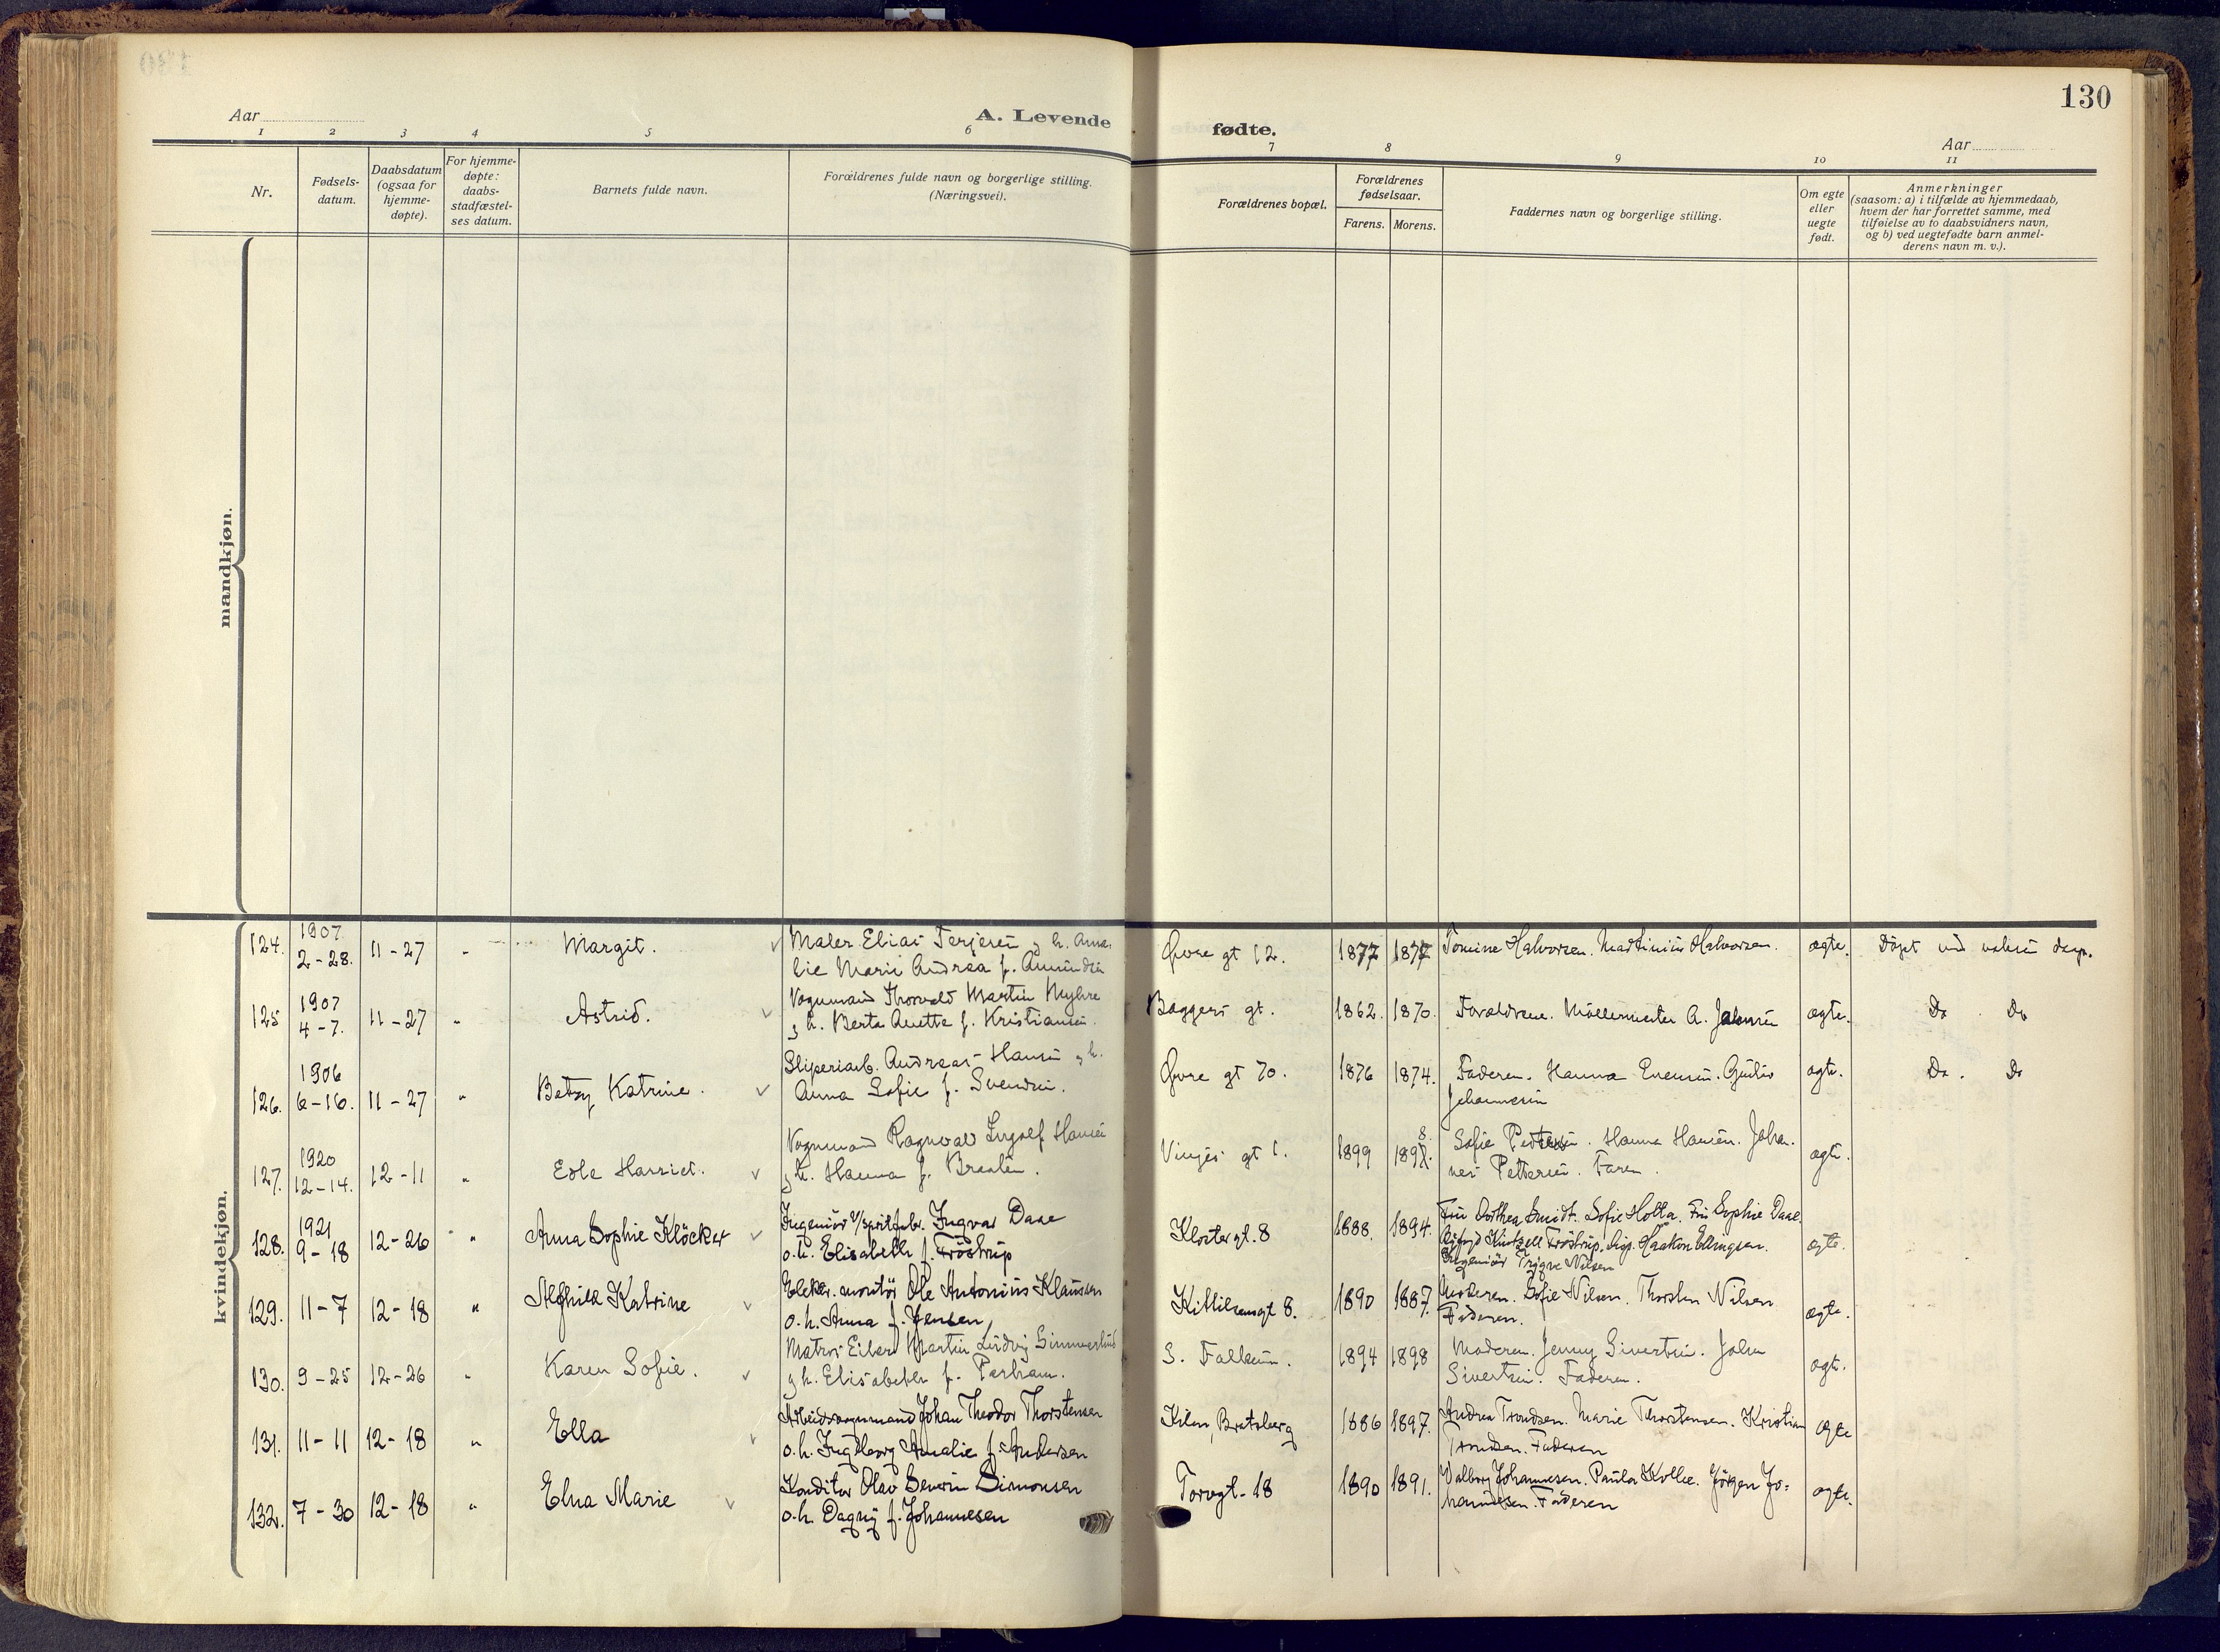 130
Aar
A. Levende
fødte.
Aar
1 2 3 4 5 6 7 8 9 10 11
Nr.
Fødsels-
datum.
Daabsdatum
(ogsaa for
hjemme-
døpte).
For hjemme-
døpte:
daabs-
stadfæstel-
ses datum.
Barnets fulde navn.
Forældrenes fulde navn og borgerlige stilling.
(Næringsvei).
Forældrenes bopæl.
Forældrenes
fødselsaar.
Farens. Morens.
Faddernes navn og borgerlige stilling.
Om egte
eller
uegte
født.
Anmerkninger
(saasom: a) i tilfælde av hjemmedaab,
hvem der har forrettet samme, med
tilføielse av to daabsvidners navn,
og b) ved uegtefødte barn anmel-
derens navn m. v.).
mandkjøn.
kvindekjøn.
124. 1907 2-28. 11-27 " Margit.
Maler Elias Terjesen g h. Ama-
lie Marie Andrea f. Amundsen
Øvre gt 12. 1877 1877 Tomine Halvorsen. Martinius Halvorsen. ægte. Døpt ved voksen daap.
125 1907 4-7. 11-27 " Astrid.
Vognmand Thorvald Martin Myhre
g h. Berta Anette f. Kristiansen.
Baggers gt. 1862. 1870. Forældrene. Møllermester A. Johnsen ægte. Do Do
126. 1906 6-16. 11-27 " Betsy Katrine.
Sliperiarb. Andreas Hansen g h.
Anna Sofie f. Svendsen.
Øvre gt 70. 1876 1874. Faderen. Hanna Evensen. Gustav
Johannesen
ægte. Do. Do
127. 1920 12-14. 12-11 " Edle Harriet.
Vognmand Ragnvald Ingolf Hansen
g h. Hanna f.
Vinjes gt 1. 1899 1898. Sofie Pettersen. Hanna Hansen. Johan-
nes Pettersen. Faren.
ægte.
128. 1921 9-18 12-26 " Anna Sophie Klöcker
Ingeniör v/spritfabr. Ingvar Daae
o. h. Elisabeth f. Fröstrup
Klostergt. 8 1888. 1894. Fru Dorthea Smidt. Sofie Holta. Fru Sophie Daae.
Fröstrup. Haakon Ellingsen.
Ingeniör Trygve Nilsen
ægte.
129. 11-7 12-18 " Alfhild Katrine
Elektr. montör Ole Antonius Klausen
o. h. Anna f. Jensen
Kittilsensgt 8. 1890 1887. Moderen. Sofie Nilsen. Thorsten Nilsen
Faderen.
ægte.
130. 9-25 12-26 " Karen Sofie.
Matros Eilert Martin Ludvig
g h. Elisabeth f.
S. Falkum. 1894 1898 Moderen. Jenny Sivertsen. John
Sivertsen. Faderen.
ægte.
131. 11-11 12-18 " Ella
Arbeidsvognmand Johan Theodor Thorstensen
o. h. Ingeborg Amalie f. Andersen
Kilen, Bratsberg 1886 1897. Andrea Trondsen. Marie Thorstensen. Kristian
Trondsen. Faderen
ægte
132. 7-30 12-18 " Elna Marie
Konditor Olav Severin Simonsen
o. h. Dagny f. Johannesen
Torvgt. 18 1890 1891. Valborg Johannesen. Paula Kolle. Jörgen Jo-
hannesen. Faderen
ægte.